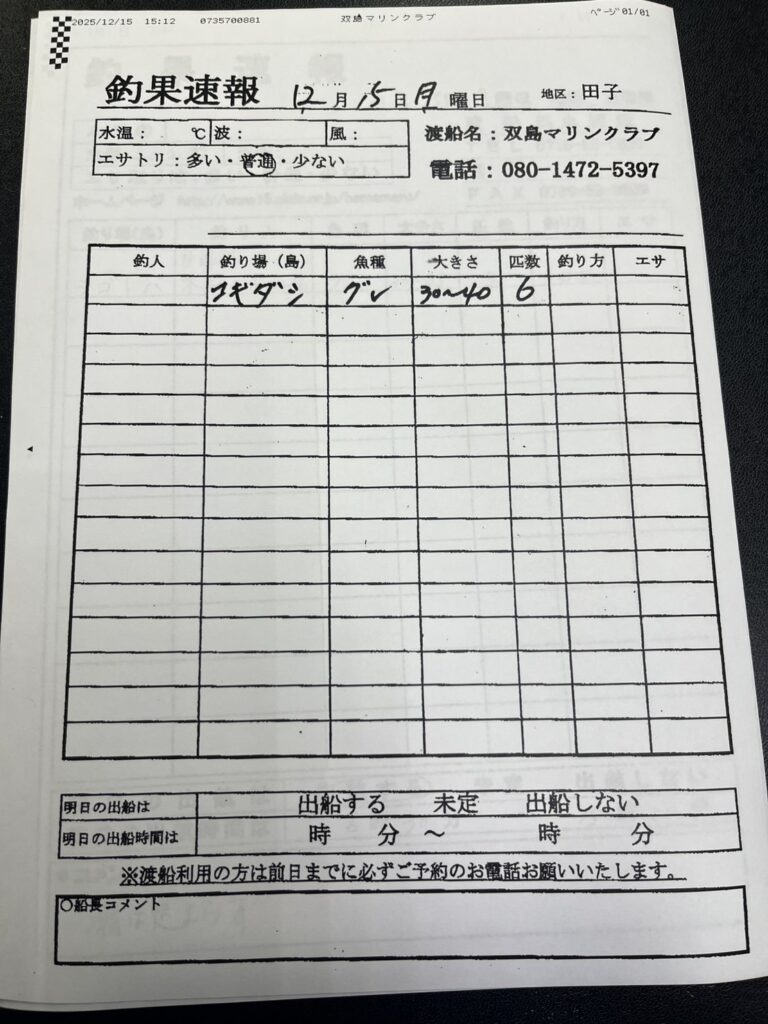 2025/12/15 15:12 0735700881 双島マリンクラブ ページ 01/01
釣果速報 12月15日月曜日 地区：田子
水温： ℃ 波： 風：
渡船名：双島マリンクラブ
エサトリ：多い・普通・少ない
電話：080-1472-5397
釣人 釣り場（島） 魚種 大きさ 匹数 釣り方 エサ
コギダシ グレ 30〜40 6
明日の出船は 出船する 未定 出船しない
明日の出船時間は 時 分 〜 時 分
※渡船利用の方は前日までに必ずご予約のお電話お願いいたします。
○船長コメント